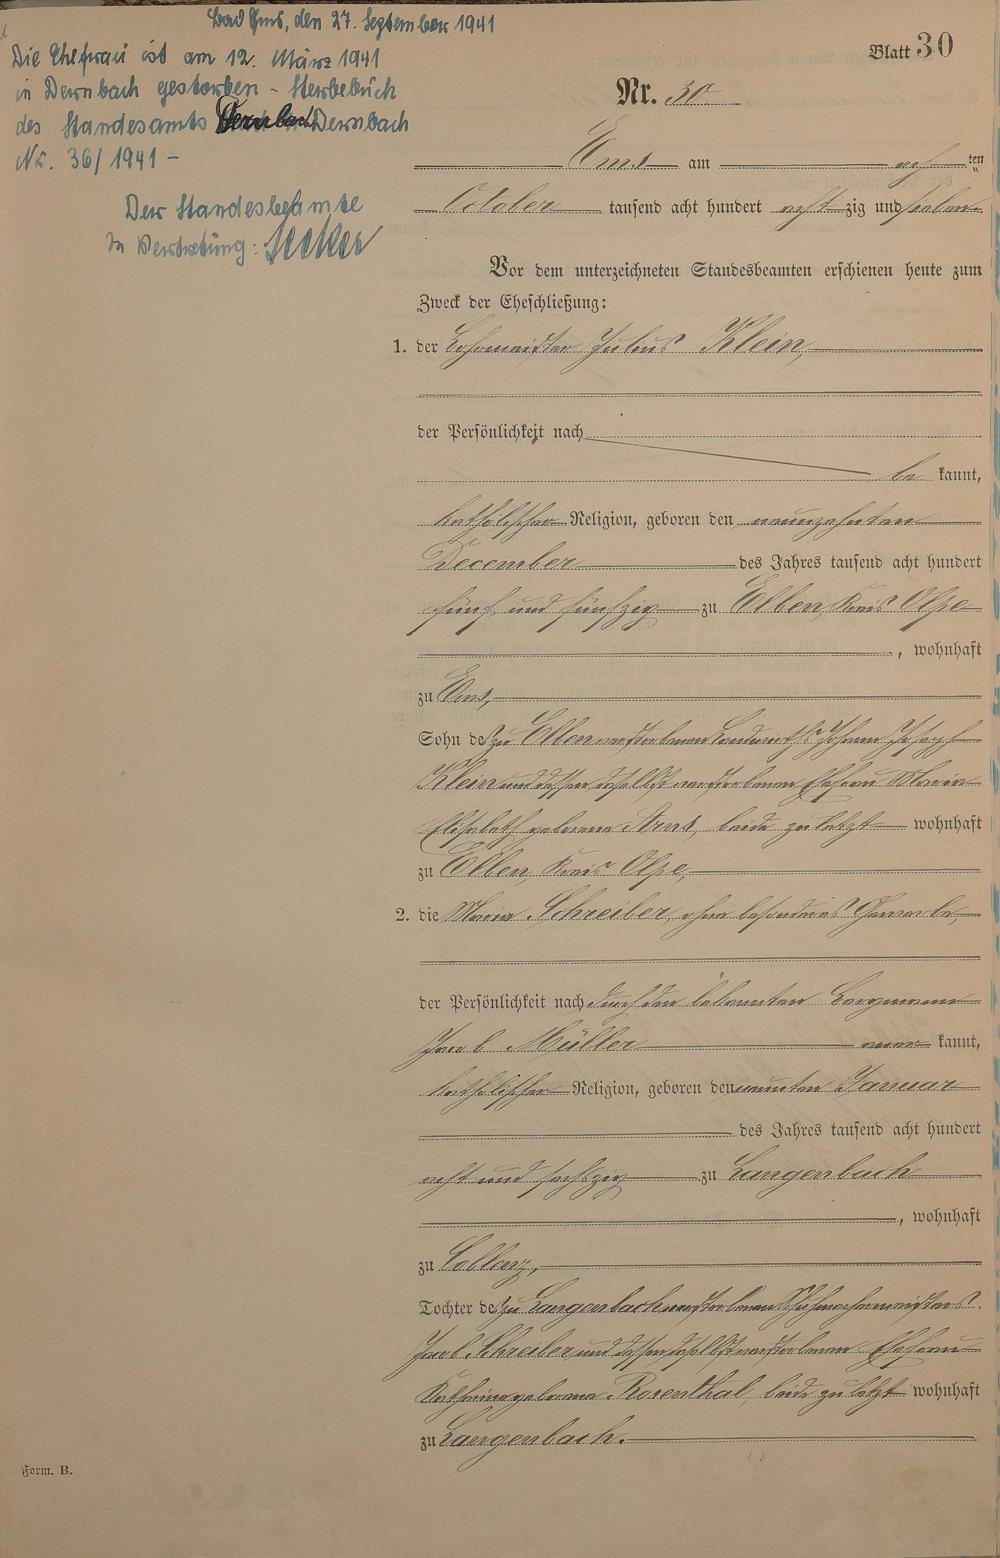 Bad Ems, den 27. September 1941
Die Ehefrau ist am 12. März 1941
in Dernbach gestorben - Sterbebuch
des Standesamts Dernbach
Nr. 36/1941 -
Der Standesbeamte
In Vertretung:
Blatt 30
Nr. 30
Ems am acht ten
October tausend acht hundert acht zig und sieben
Vor dem unterzeichneten Standesbeamten erschienen heute zum
Zweck der Eheschließung:
1. der Julius Klein,
der Persönlichkeit nach
be kannt,
katholischer Religion, geboren den neunzehnten
December des Jahres tausend acht hundert
fünf und fünfzig zu Elben, Kreis Olpe
, wohnhaft
zu Ems,
Sohn des zu Elben verstorbenen Landwirths Johann Joseph
Klein und dessen daselbst verstorbenen Ehefrau Maria
Elisabeth geborene Arns, beide zuletzt wohnhaft
zu Elben, Kreis Olpe,
2. die Maria Schreiber, ohne besonderes Gewerbe,
der Persönlichkeit nach durch den bekannten Bergmann
Jacob Müller aner kannt,
katholischer Religion, geboren den neunten Januar
des Jahres tausend acht hundert
acht und sechszig zu Langenbach
, wohnhaft
zu Coblenz,
Tochter des zu Langenbach verstorbenen Schuhmachermeisters
Jacob Schreiber und dessen daselbst verstorbenen Ehefrau
Katharina geborene Rosenthal, beide zuletzt wohnhaft
zu Langenbach.
Form. B.